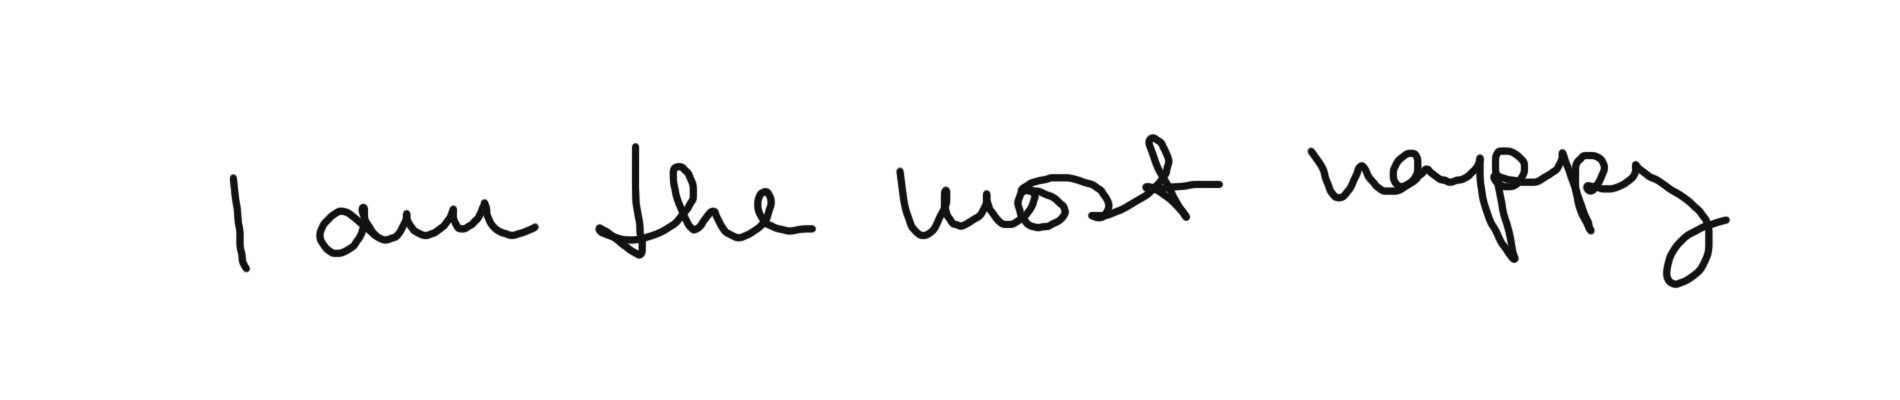 I am the most happy